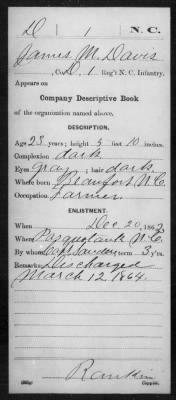 D | 1 | N. C.
James M. Davis
Co. D, 1 Reg't N. C. Infantry.
Appears on
Company Descriptive Book
of the organization named above.
DESCRIPTION.
Age 23 years; height 5 feet 10 inches.
Complexion dark
Eyes gray; hair dark.
Where born Beaufort N.C.
Occupation Farmer
ENLISTMENT.
When Dec. 20, 186
Where Pasquotank N.C.
By whom Capt. Sanders term 3 y'rs.
Remarks: Discharged
March 12 1864.
Rankin
Copyist.